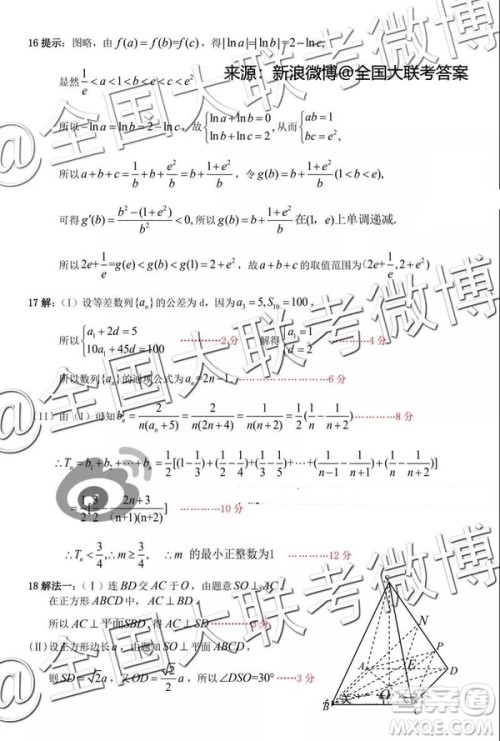 16 提示：图略，由 f(a)=f(b)=f(c)，得|ln a|=|ln b|=2-ln c,
来源：新浪微博@全国大联考答案
显然 1/e<a<1<b<e<c<e²
所以-ln a=ln b=2-ln c，故{ln a+ln b=0 ln b+ln c=2，从而{ab=1 bc=e²，
所以 a+b+c=1/b+b+e²/b=b+(1+e²)/b，令 g(b)=b+(1+e²)/b (1<b<e),
可得 g′(b)=(b²-(1+e²))/b²<0, 所以 g(b)=b+(1+e²)/b 在(1, e)上单调递减.
所以 2e+1/e=g(e)<g(b)<g(1)=2+e²，故 a+b+c 的取值范围为(2e+1/e,2+e²)
17 解：(Ⅰ) 设等差数列{aₙ}的公差为 d，因为 a₃=5,S₁₀=100，
所以{a₁+2d=5 10a₁+45d=100 …………2分 解得{a₁=1 …………4分
所以数列{aₙ}的通项公式为aₙ=2n-1. …………6 分
(II)由 (Ⅰ) 可知bₙ=2/(n(aₙ+5))=2/(n(2n+4))=1/(n(n+2))=1/2(1/n-1/(n+2)) …………8分
∴Tₙ=b₁+b₂+⋯+bₙ=1/2[(1-1/3)+(1/2-1/4)+(1/3-1/5)+⋯+(1/(n-1)-1/(n+1))+(1/n-1/(n+2))]
=1/2[3/2-(2n+3)/((n+1)(n+2))] …………10 分
∴Tₙ<3/4,∴m≥3/4, ∴ m 的最小正整数为1 …………12 分
18 解法一：(Ⅰ) 连 BD 交 AC 于 O，由题意 SO⊥AC.
在正方形 ABCD 中，AC⊥BD，
所以 AC⊥平面SBD，得 AC⊥SD.
(Ⅱ)设正方形边长 a，由题知 SO⊥平面ABCD，
则 SD=√2a，又OD=√2/2 a，所以∠DSO=30° …………3分
S
N
P
A
E
D
B
O
C
@全国大联考微博
@全国大联考微博
@全国大联考微博